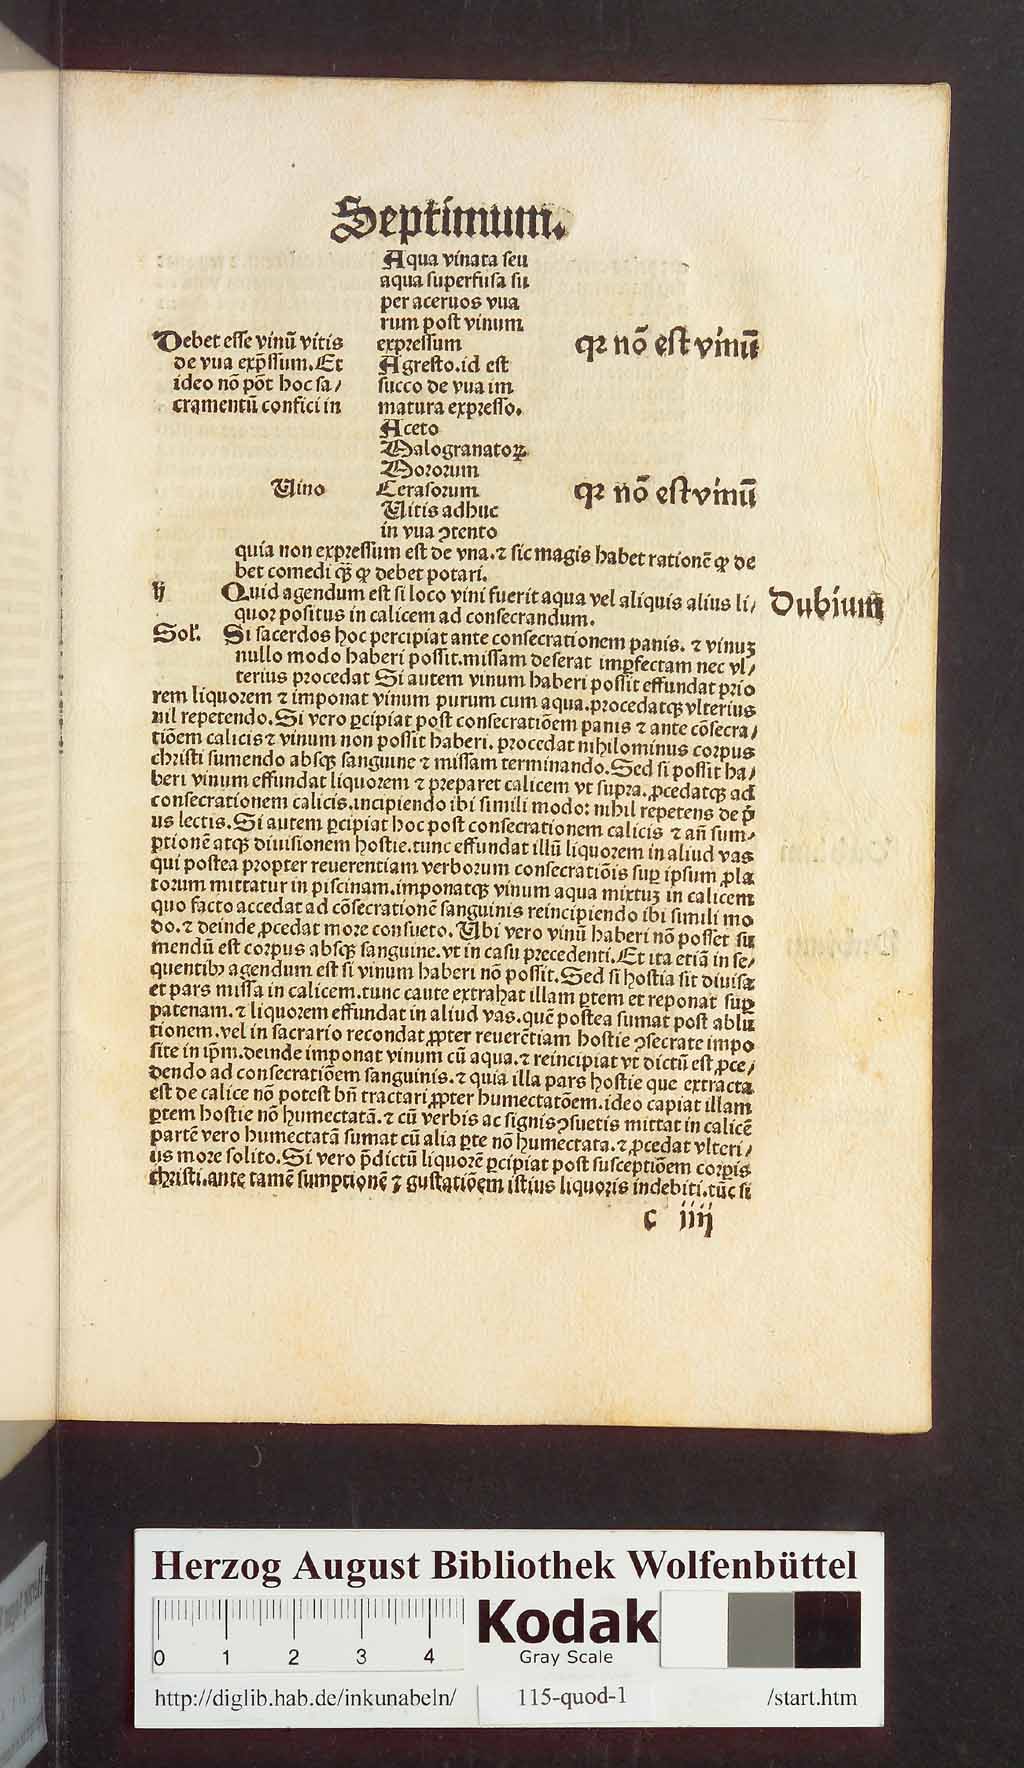 Septimum.
Aqua vinata seu
aqua superfusa su
per aceruos vua
rum post vinum
expressum
Agresto.id est
succo de vua im
matura expresso.
Aceto
Malogranatoꝝ
Mororum
Cerasorum
Uitis adhuc
in vua ↄtento
Debet esse vinū vitis
de vua exp̄ssum.Et
ideo nō pōt hoc sa/
cramentū confici in
Uino
qꝛ nō est vinū
qꝛ nō est vinū
quia non expressum est de vna.⁊ sic magis habet rationē ꝙ de
bet comedi qꝫ̄ ꝙ debet potari.
ij Quid agendum est si loco vini fuerit aqua vel aliquis alius li/
Dubium
quor positus in calicem ad consecrandum.
Sol'. Si sacerdos hoc percipiat ante consecrationem panis. ⁊ vinuꝫ
nullo modo haberi possit.missam deserat imꝑfectam nec vl/
terius procedat Si autem vinum haberi possit effundat prio
rem liquorem ⁊ imponat vinum purum cum aqua.procedatqꝫ vlterius
nil repetendo.Si vero ꝑcipiat post consecratiōem panis ⁊ ante cōsecra/
tiōem calicis ⁊ vinum non possit haberi. procedat nihilominus corpus
christi sumendo absqꝫ sanguine ⁊ missam terminando.Sed si possit ha/
beri vinum effundat liquorem ⁊ preparet calicem vt supra.ꝓcedatqꝫ ad
consecrationem calicis.incipiendo ibi simili modo: nihil repetens de p̄
us lectis.Si autem ꝑcipiat hoc post consecrationem calicis ⁊ an̄ sum/
ptionē atqꝫ diuisionem hostie.tunc effundat illū liquorem in aliud vas
qui postea propter reuerentiam verborum consecratiōis suꝑ ipsum ꝓla
torum mittatur in piscinam.imponatqꝫ vinum aqua mixtuꝫ in calicem
quo facto accedat ad cōsecrationē sanguinis reincipiendo ibi simili mo
do.⁊ deinde ꝓcedat more consueto.Ubi vero vinū haberi nō posset su
mendū est corpus absqꝫ sanguine.vt in casu precedenti.Et ita etiā in se/
quentibꝰ agendum est si vinum haberi nō possit.Sed si hostia sit diuisa
et pars missa in calicem.tunc caute extrahat illam ꝑtem et reponat suꝑ
patenam.⁊ liquorem effundat in aliud vas.quē postea sumat post ablu
tionem.vel in sacrario recondat ꝓpter reuerētiam hostie ↄsecrate impo
site in ip̄m.deinde imponat vinum cū aqua.⁊ reincipiat vt dictū est ꝓce/
dendo ad consecratiōem sanguinis.⁊ quia illa pars hostie que extracta
est de calice nō potest bn̄ tractari ꝓpter humectatōem.ideo capiat illam
ꝑtem hostie nō humectatā.⁊ cū verbis ac signis ↄsuetis mittat in calicē
partē vero humectatā sumat cū alia ꝑte nō humectata.⁊ ꝓcedat vlteri/
us more solito.Si vero p̄dictū liquorē ꝑcipiat post susceptiōem corꝑis
christi.ante tamē sumptionē ⁊ gustatiōem istius liquoris indebiti.tūc si
c iiij
Herzog August Bibliothek Wolfenbüttel
0 1 2 3 4
Kodak
Gray Scale
http://diglib.hab.de/inkunabeln/ 115-quod-1 /start.htm